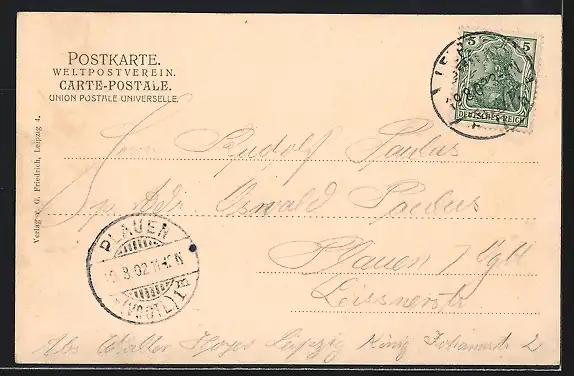 POSTKARTE.
WELTPOSTVEREIN.
CARTE-POSTALE.
UNION POSTALE UNIVERSELLE.
5 5
DEUTSCHES REICH
Herrn Rudolf Paulus
p. Adr. Oswald Paulus
Plauen / Vgtl
Leissnerstr
PLAUEN
9.8.02 11-12 N
(VOGTL) 1
Abs Walter Leipzig König Johannstr 2
Verlag v. G. Friedrich, Leipzig 4.